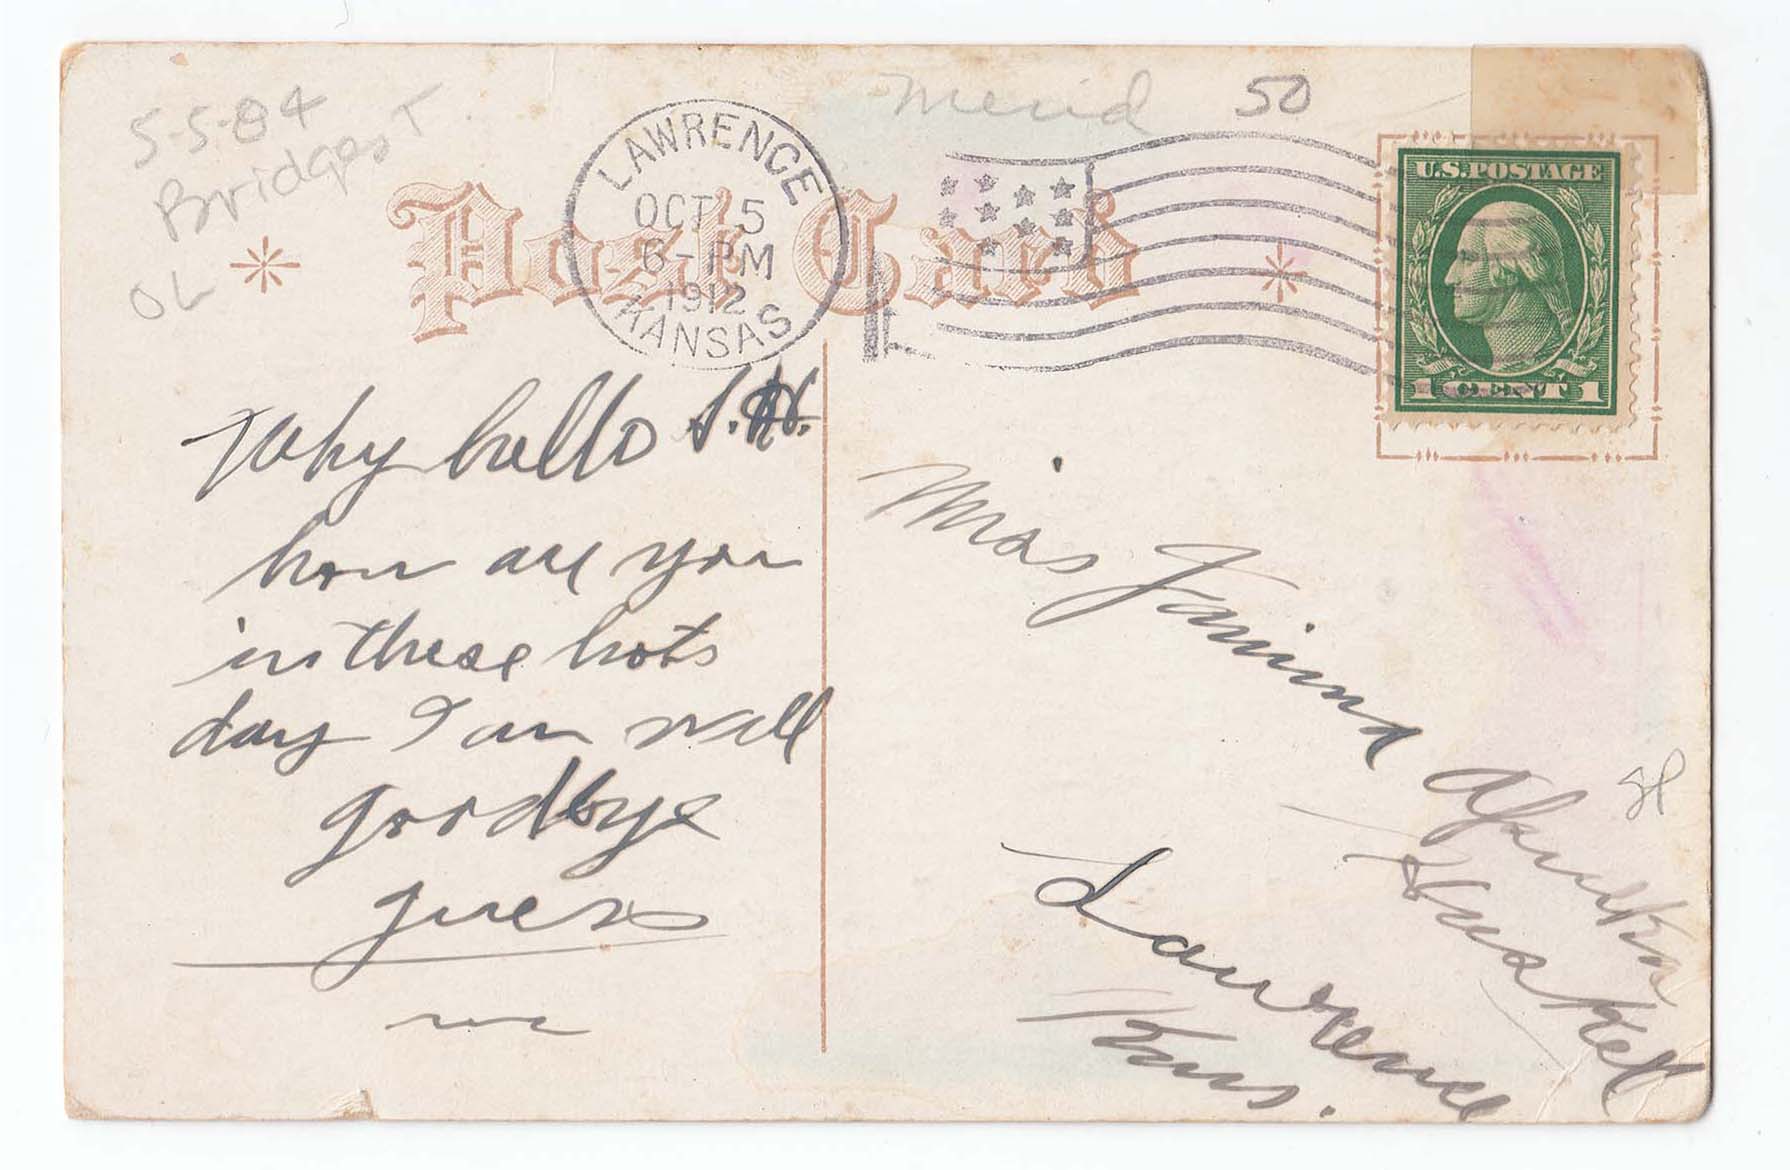 5-5-84
Bridgept
OL
Merid 50
Post Card
LAWRENCE
OCT 5
6-PM
1912
KANSAS
U.S. POSTAGE
1 CENT 1
Why hello
how are you
in these hots
day I am well
goodbye
guess
Miss
Haskell
Lawrence
Kans.